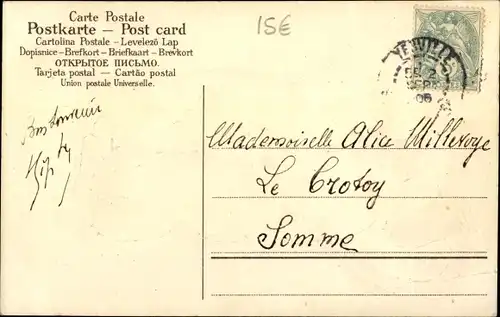 Carte Postale
Postkarte – Post card
Cartolina Postale – Levelező Lap
Dopisnice – Brefkort – Briefkaart – Brevkort
ОТКРЫТОЕ ПИСЬМО.
Tarjeta postal – Cartão postal
Union postale Universelle.
15€
06
Mademoiselle Alice Millevoye
Le Crotoy
Somme